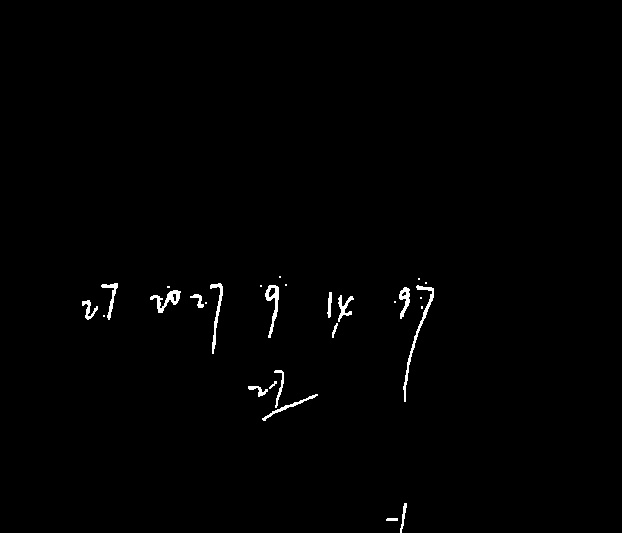 27 20 27 9 14 97
27
-1